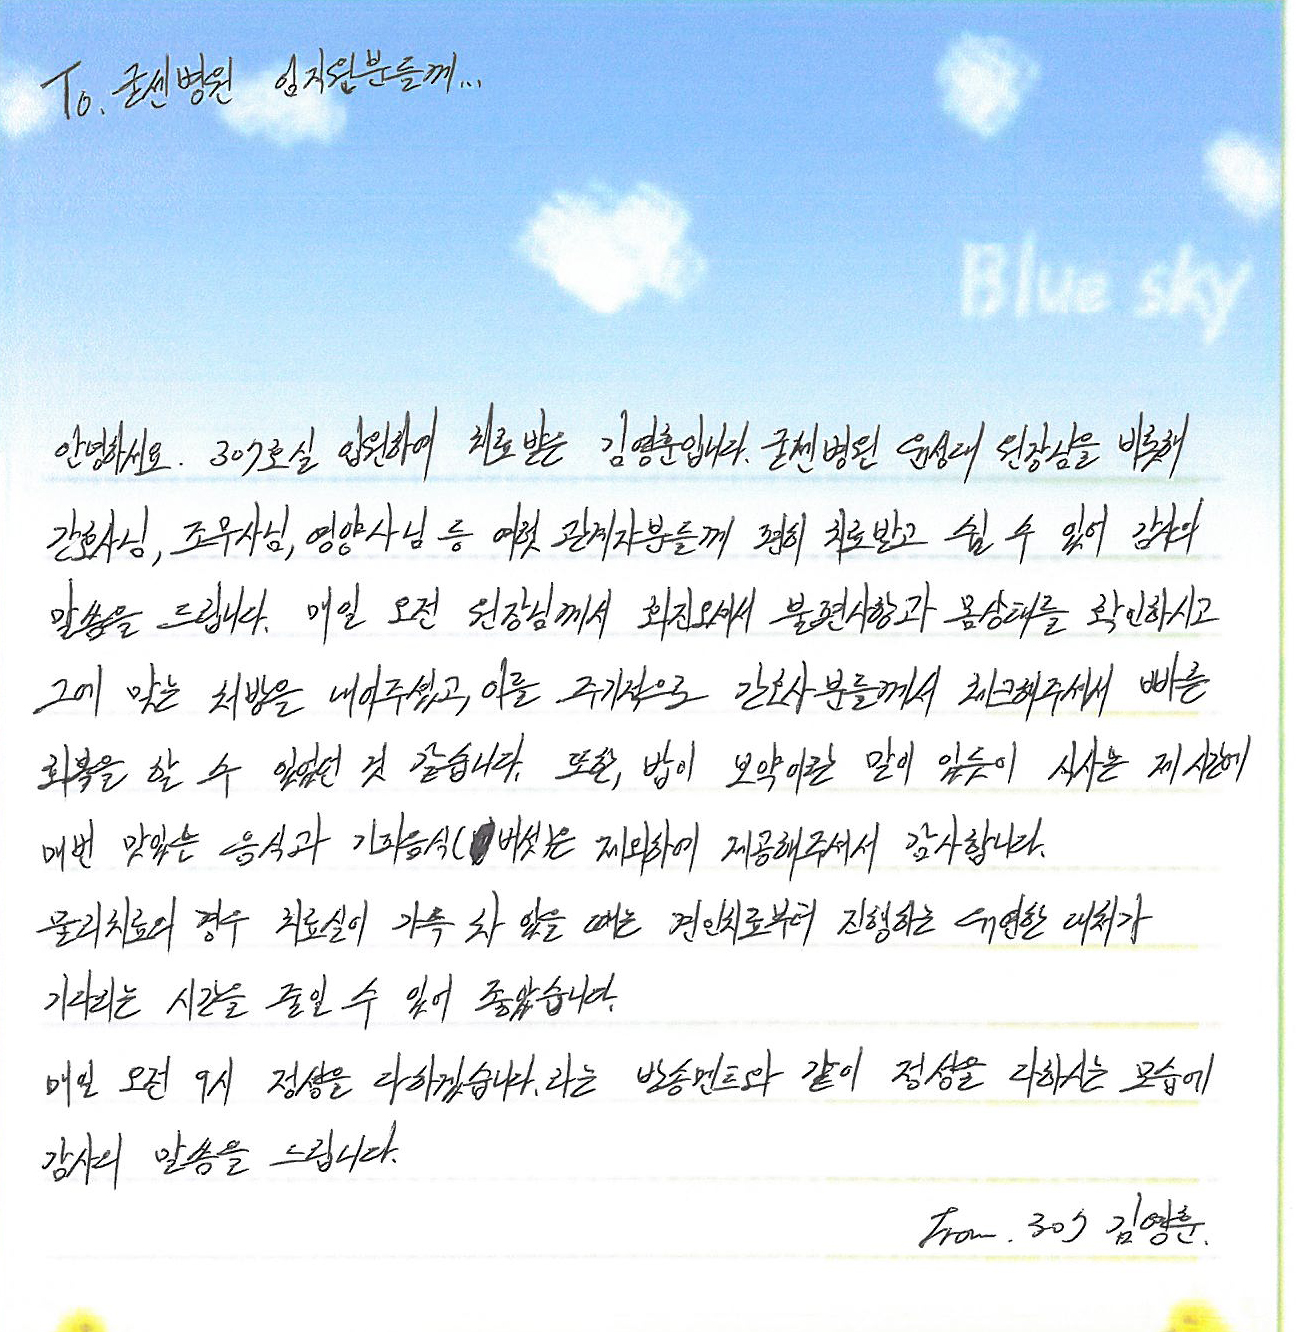 To. 굳센병원 임직원분들께...
Blue sky
안녕하세요. 307호실 입원하여 치료받은 김영훈입니다. 굳센병원 윤성대 원장님을 비롯해
간호사님, 조무사님, 영양사님 등 여럿 관계자분들께 편히 치료받고 쉴 수 있어 감사의
말씀을 드립니다. 매일 오전 원장님께서 회진오셔서 불편사항과 몸상태를 확인하시고
그에 맞는 처방을 내어주셨고, 이를 주기적으로 간호사분들께서 체크해주셔서 빠른
회복을 할 수 있었던 것 같습니다. 또한, 밥이 보약이란 말이 있듯이 식사는 제 시간에
매번 맛있는 음식과 기피음식(버섯)은 제외하여 제공해주셔서 감사합니다.
물리치료의 경우 치료실이 가득 차 있을 때는 견인치료부터 진행하는 유연한 대처가
기다리는 시간을 줄일 수 있어 좋았습니다.
매일 오전 9시 정성을 다하겠습니다.라는 방송멘트와 같이 정성을 다하시는 모습에
감사의 말씀을 드립니다.
From. 307 김영훈.